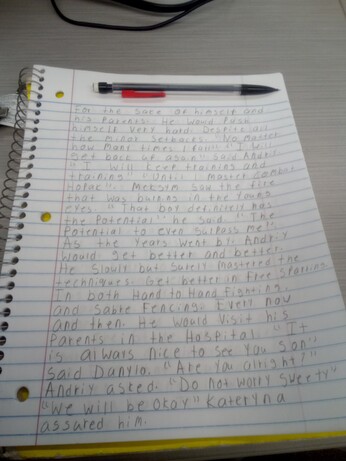 For the sake of himself and
his parents. He would push
himself very hard. Despite all
the minor setbacks. "No matter
how many times I fall" "I will
get back up again" said Andriy
"I will keep training and
training" "Until I Master Combat
Hopak". Maksim saw the fire
that was burning in the young
eyes. "That boy definitely has
the potential" he said. "The
Potential to even surpass me".
As the years went by. Andriy
would get better and better.
He slowly but surely mastered the
techniques. Get better in free sparring
In both Hand to Hand Fighting.
and Sabre Fencing. Every now
and then. He would visit his
Parents in the Hospital. "It
is always nice to see you son"
said Danylo. "Are you alright?"
Andriy asked. "Do not worry sweety"
"We will be okay" Kateryna
assured him.